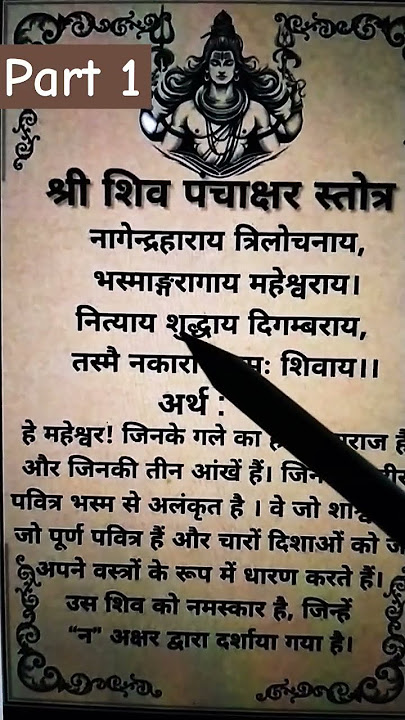 Part 1
श्री शिव पचाक्षर स्तोत्र
नागेन्द्रहाराय त्रिलोचनाय,
भस्माङ्गरागाय महेश्वराय।
नित्याय शुद्धाय दिगम्बराय,
तस्मै शिवाय।।
अर्थ :
हे महेश्वर! जिनके गले का
और जिनकी तीन आंखें हैं।
पवित्र भस्म से अलंकृत है । वे जो
जो पूर्ण पवित्र हैं और चारों दिशाओं को
अपने वस्त्रों के रूप में धारण करते हैं।
उस शिव को नमस्कार है, जिन्हें
“न” अक्षर द्वारा दर्शाया गया है।